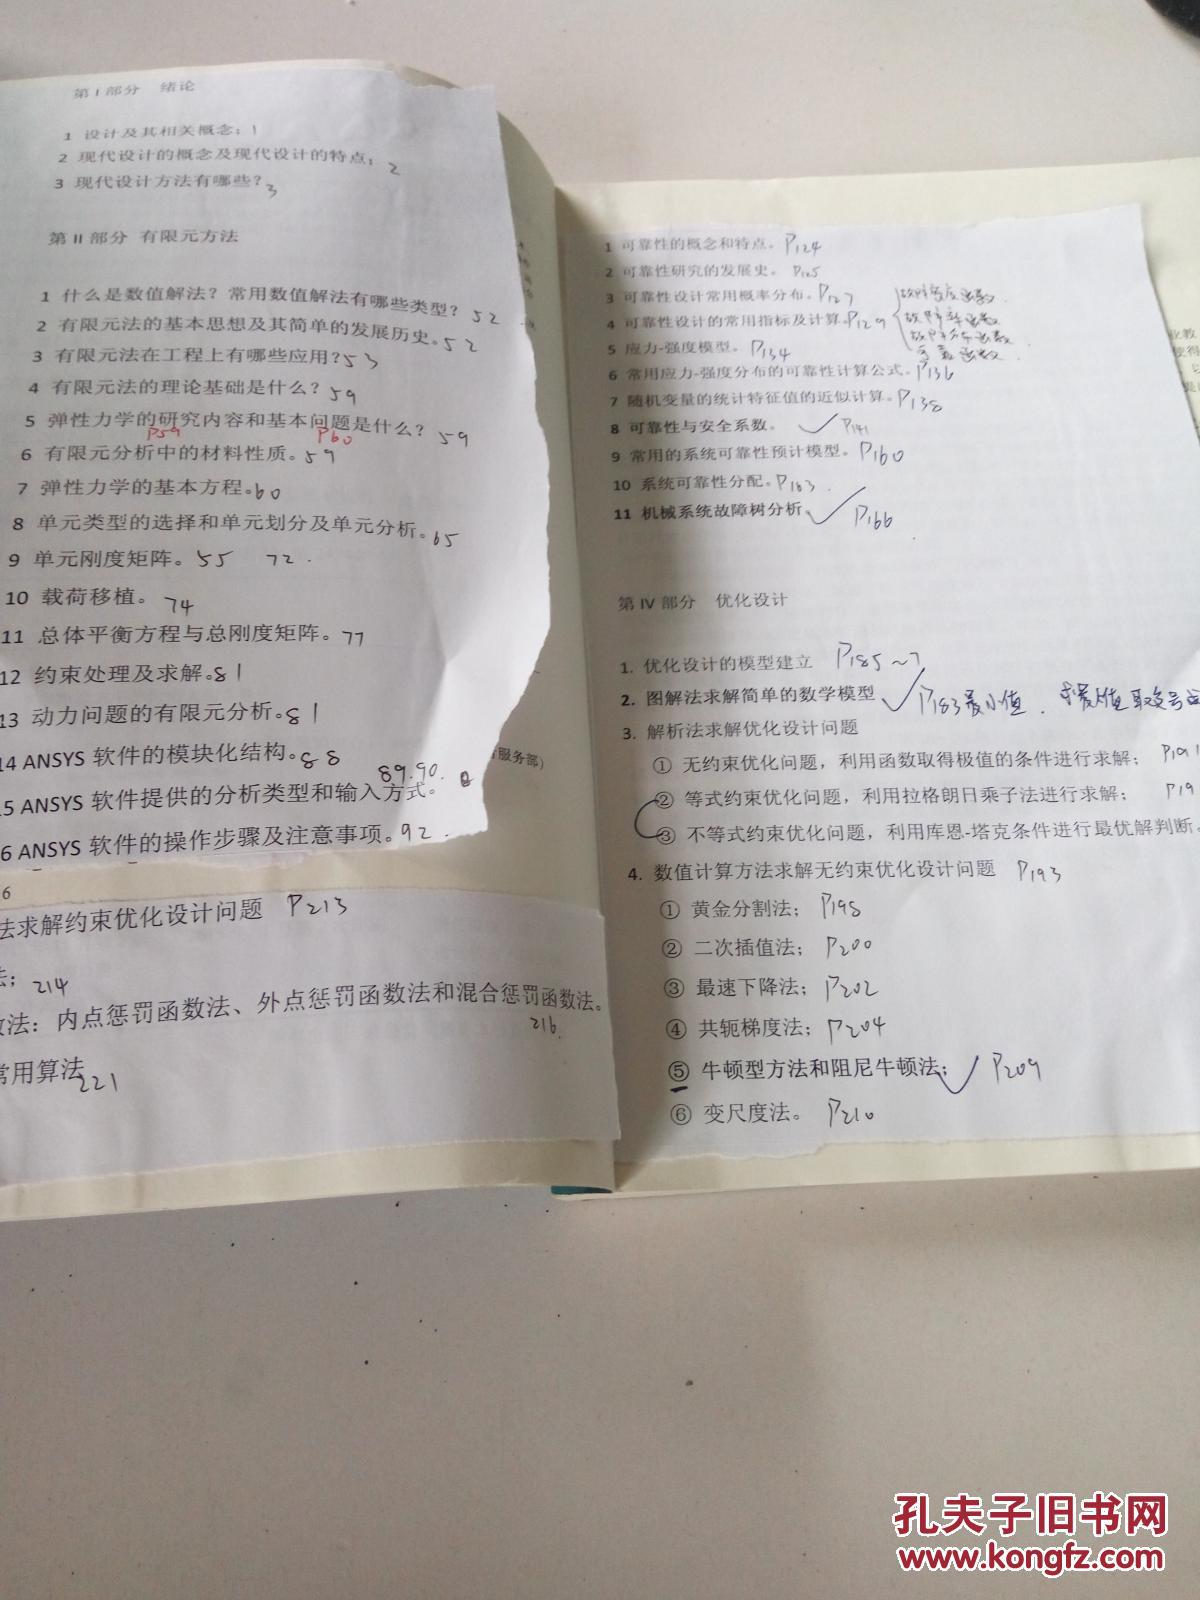 第 I 部分 绪论
1 设计及其相关概念；1
2 现代设计的概念及现代设计的特点；2
3 现代设计方法有哪些？3
第 II 部分 有限元方法
1 什么是数值解法？常用数值解法有哪些类型？52
2 有限元法的基本思想及其简单的发展历史。52
3 有限元法在工程上有哪些应用？53
4 有限元法的理论基础是什么？59
5 弹性力学的研究内容和基本问题是什么？59
P59 P60
6 有限元分析中的材料性质。59
7 弹性力学的基本方程。60
8 单元类型的选择和单元划分及单元分析。65
9 单元刚度矩阵。55 72.
10 载荷移植。74
11 总体平衡方程与总刚度矩阵。77
12 约束处理及求解。81
13 动力问题的有限元分析。81
14 ANSYS 软件的模块化结构。88
89.90.
15 ANSYS 软件提供的分析类型和输入方式。
6 ANSYS 软件的操作步骤及注意事项。92.
服务部）
6
法求解约束优化设计问题 P213
法；214
数法：内点惩罚函数法、外点惩罚函数法和混合惩罚函数法。
216.
常用算法 221
1 可靠性的概念和特点。P124
2 可靠性研究的发展史。P125
3 可靠性设计常用概率分布。P127
4 可靠性设计的常用指标及计算。P129
故障密度函数.
故障率函数
故障分布函数
可靠函数.
5 应力-强度模型。P134
6 常用应力-强度分布的可靠性计算公式。P136
7 随机变量的统计特征值的近似计算。P138
8 可靠性与安全系数。✓ P141
9 常用的系统可靠性预计模型。P160
10 系统可靠性分配。P163.
11 机械系统故障树分析✓ P166
第 IV 部分 优化设计
1. 优化设计的模型建立 P185~7
2. 图解法求解简单的数学模型✓ P183最小值. 求最大值取负号
3. 解析法求解优化设计问题
① 无约束优化问题，利用函数取得极值的条件进行求解；P191
② 等式约束优化问题，利用拉格朗日乘子法进行求解；P19
③ 不等式约束优化问题，利用库恩-塔克条件进行最优解判断。
4. 数值计算方法求解无约束优化设计问题 P193
① 黄金分割法；P198
② 二次插值法；P200
③ 最速下降法；P202
④ 共轭梯度法；P204
⑤ 牛顿型方法和阻尼牛顿法；✓ P209
⑥ 变尺度法。P210
业教
使得
以
孔夫子旧书网
www.kongfz.com